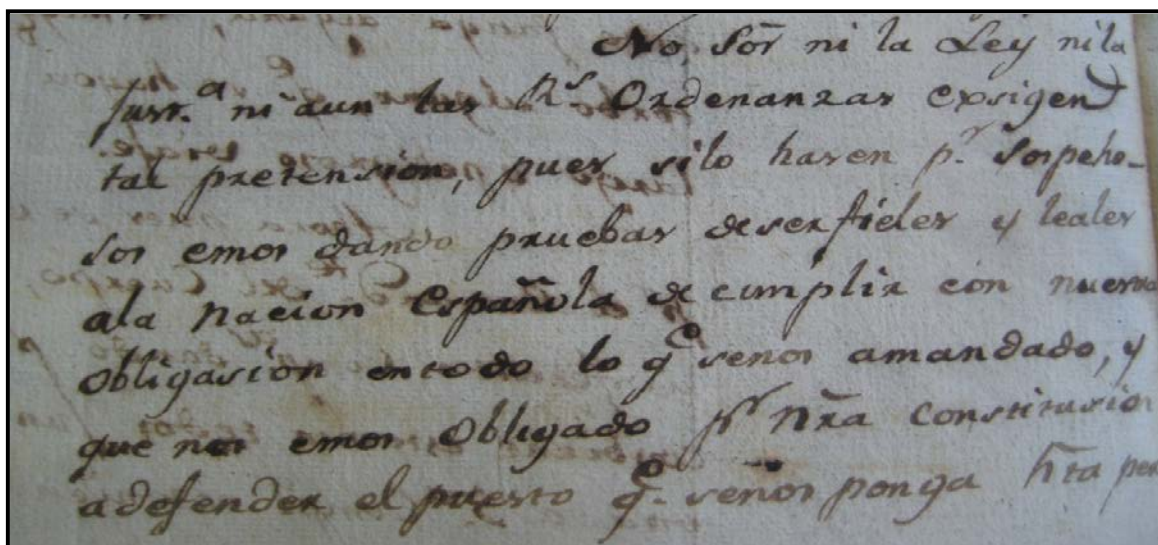 No, Sor̃ ni la Ley ni la
Just.ª ni aun las R.s Ordenanzas exsigen
tal pretension, pues silo hasen p.r sospeho-
sos emos dando pruebas de ser fieles y leales
ala Nacion Española de cumplir con nuestra
obligasion entodo lo q.e senos amandado, y
que nos emos obligado p.r nr̃a constitusion
a defender el puesto q.e señor ponga hr̃ta per